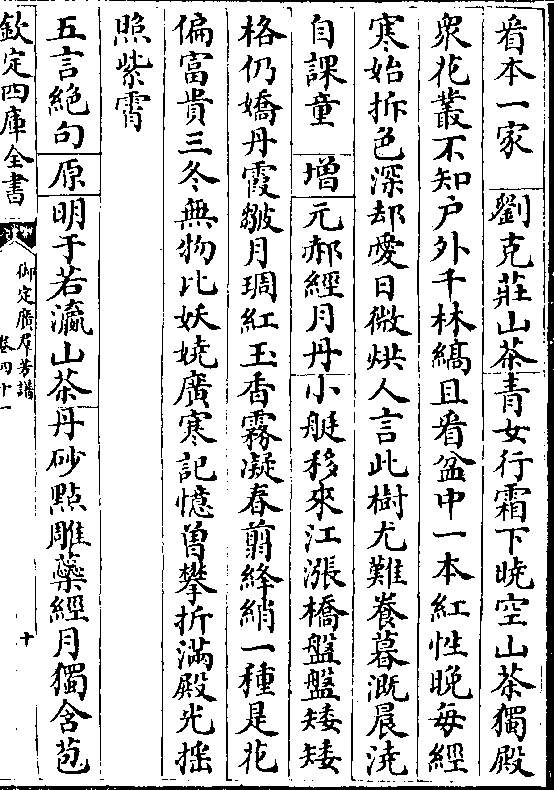 看本一家　劉克莊山茶青女行霜下曉空山茶獨殿
衆花叢不知户外千林縞且看盆中一本紅性晚每經
寒始拆色深却愛日微烘人言此樹尤難養暮溉晨澆
自課童　增　元郝經月丹小艇移來江漲橋盤盤矮矮
格仍嬌丹霞皺月琱紅玉香霧凝春剪絳綃一種是花
偏富貴三冬無物比妖嬈廣寒記憶曾攀折滿殿光揺
照紫霄
五言絶句　原　明于若瀛山茶丹砂點雕蘂經月獨含苞
欽定四庫全書　御定廣羣芳譜　卷四十一　十